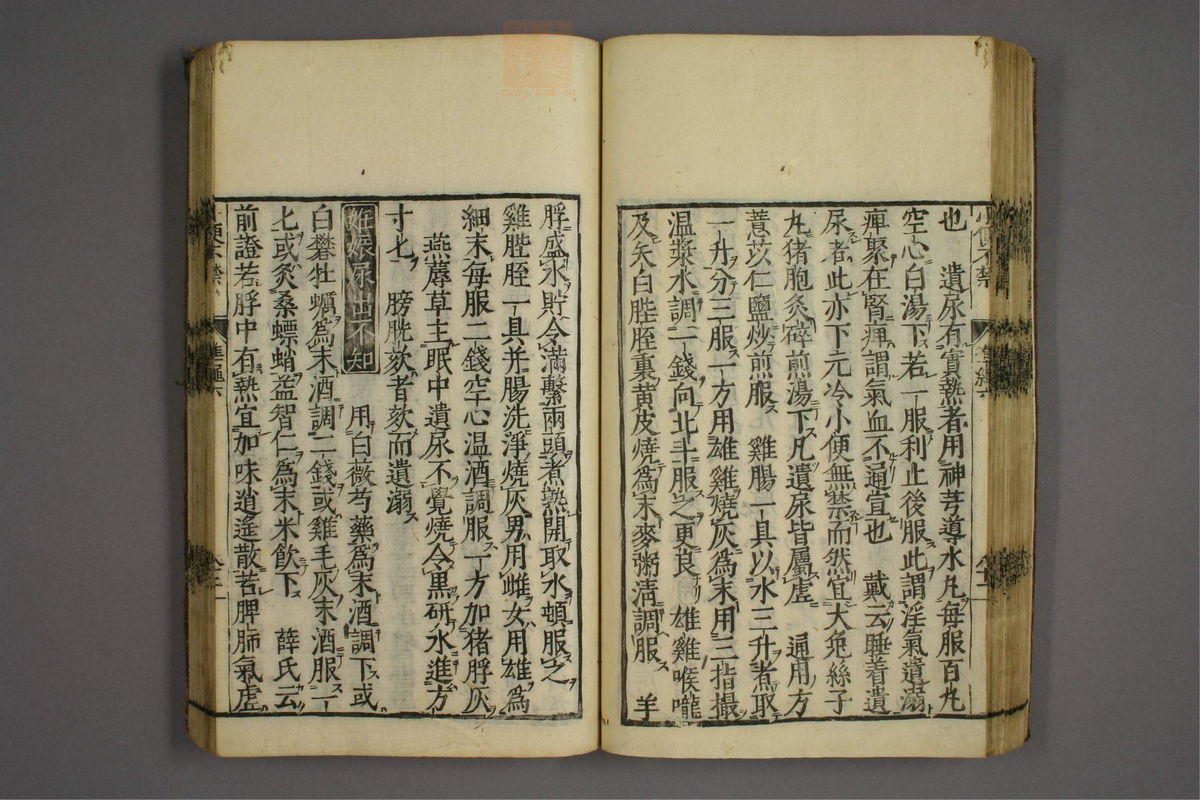 也　遺尿有實熱者用神芎導水丸毎服百丸
空心白湯下若一服利止後服此謂淫氣遺溺
痺聚在腎痺謂氣血不通宣也　戴云睡着遺
尿者此亦下元冷小便無禁而然宜大兔絲子
丸猪胞灸碎煎湯下凡遺尿皆屬虛　通用方
薏苡仁鹽炒煎服　雞腸一具以水三升煮取
一升分三服一方用雄雞燒灰為末用三指撮
温漿水調二錢向北斗服之更良　雄雞喉嚨
及矢白膍胵裏黄皮燒為末麥粥清調服　羊
脬盛水貯令滿繫兩頭煮熟開取水頓服之
雞膍胵一具并腸洗淨燒灰男用雌女用雄為
細末毎服二錢空心温酒調服一方加猪脬灰
燕蓐草主眠中遺尿不覺燒令黒研水進方
寸匕　膀胱欬者欬而遺溺
妊娠尿出不知　用白薇芍藥為末酒調下或
白礬牡蠣為末酒調二錢或雞毛灰末酒服一
匕或灸桑螵蛸益智仁為末米飲下　薛氏云
前證若脬中有熱宜加味逍遙散若脾肺氣虛